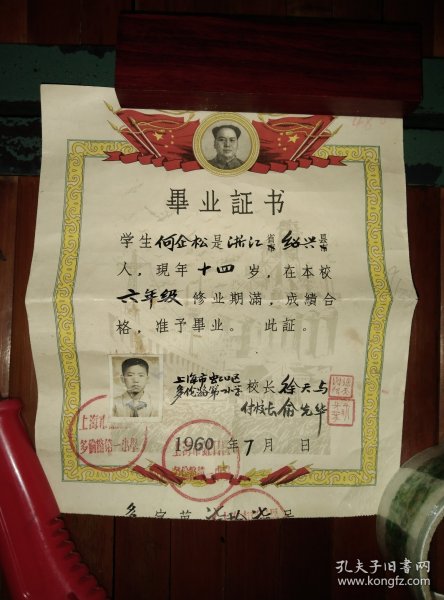 畢业証书
学生何企松是浙江省市绍兴县市
人，現年十四岁，在本校
六年級修业期滿，成績合
格，准予畢业。此証。
上海市虹口区
多伦路第一小学
校长徐天与
付校长俞先华
上海市
多倫路第一小學
1960年7月 日
多字第 柒拾柒号
孔夫子旧书网
www.kongfz.com